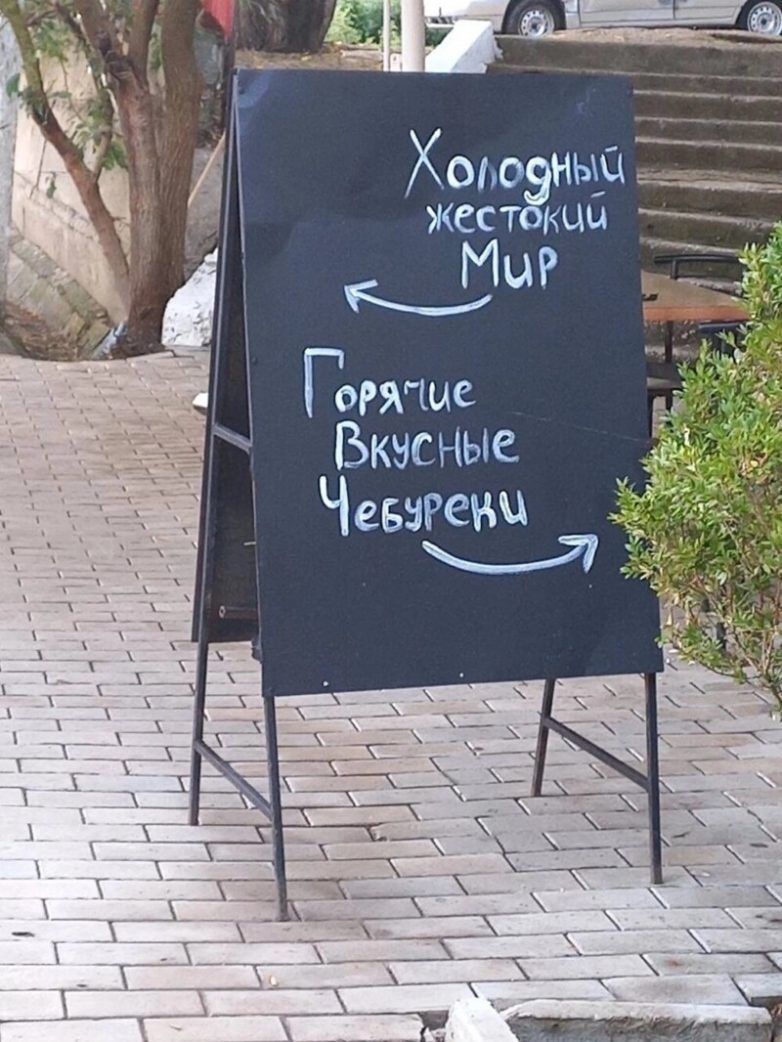 Холодный
жестокий
Мир
Горячие
Вкусные
Чебуреки